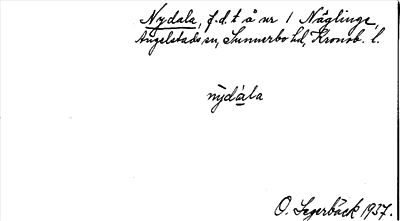 Nydala, f.d. t å nr 1 Näglinge,
Angelstads sn, Sunnerbo hd, Kronob. l.
nỳdála
O. Segerbäck 1937.